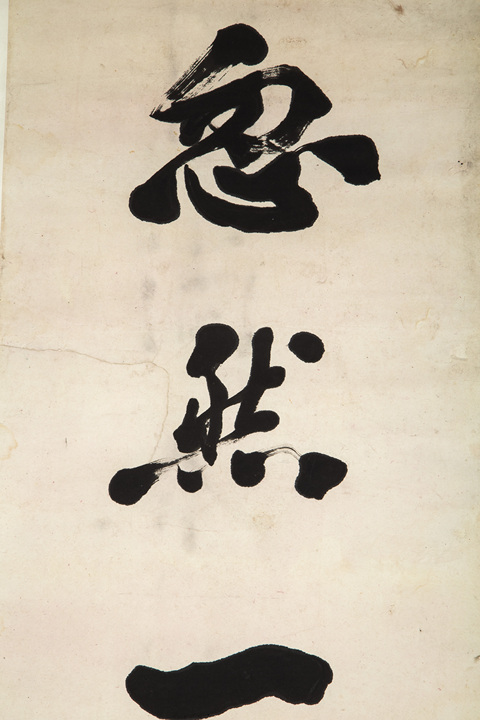 忽然一